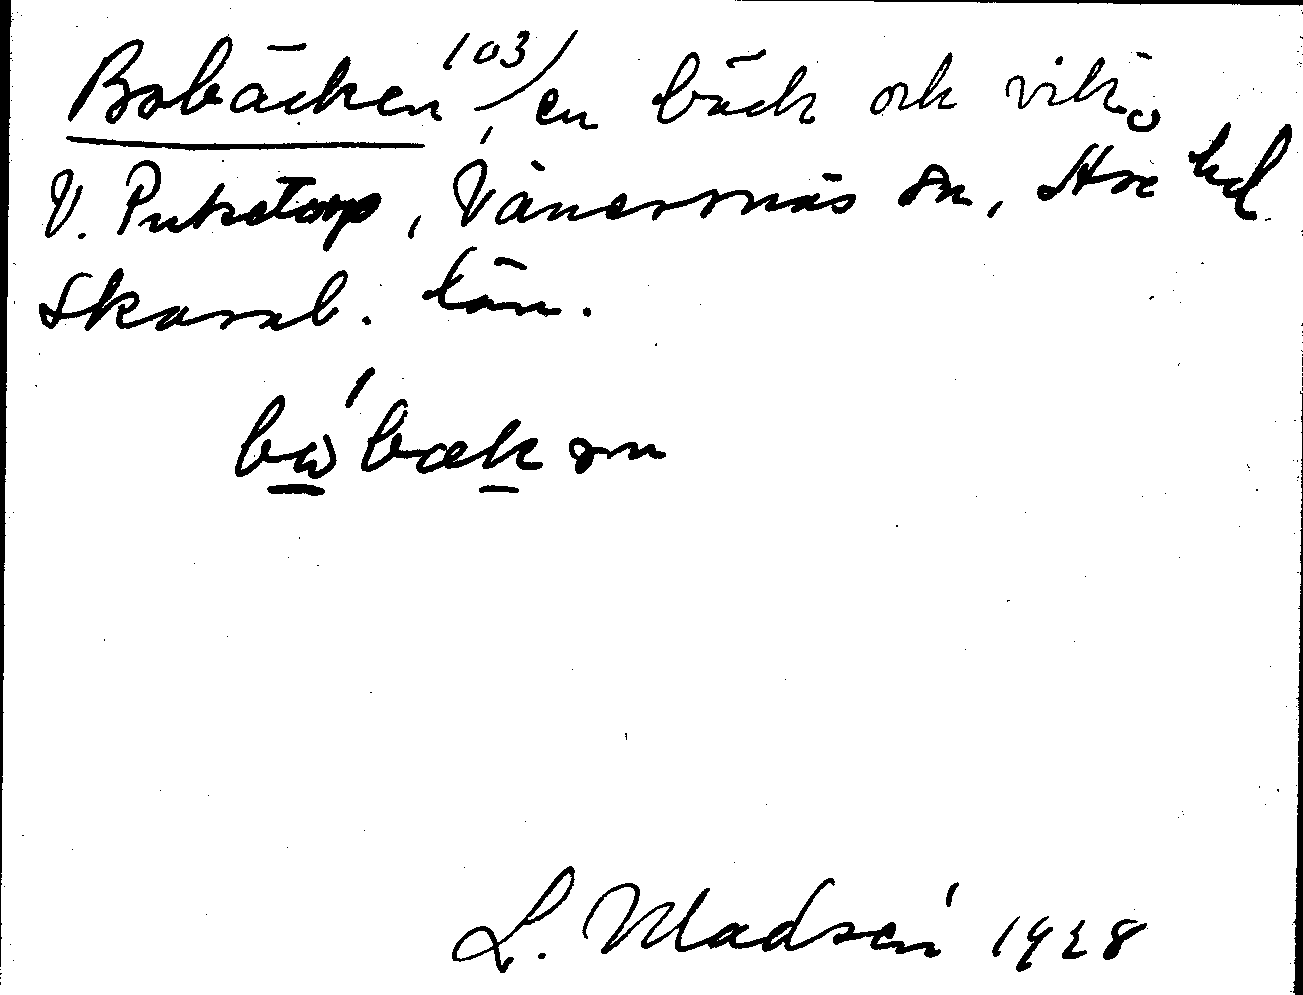 Bobäcken 103/, en bäck ock vik,
V. Puketorp, Vänersnäs sn, Åse hd
Skarab. län.
bɷ'bækən
L. Madsén 1928